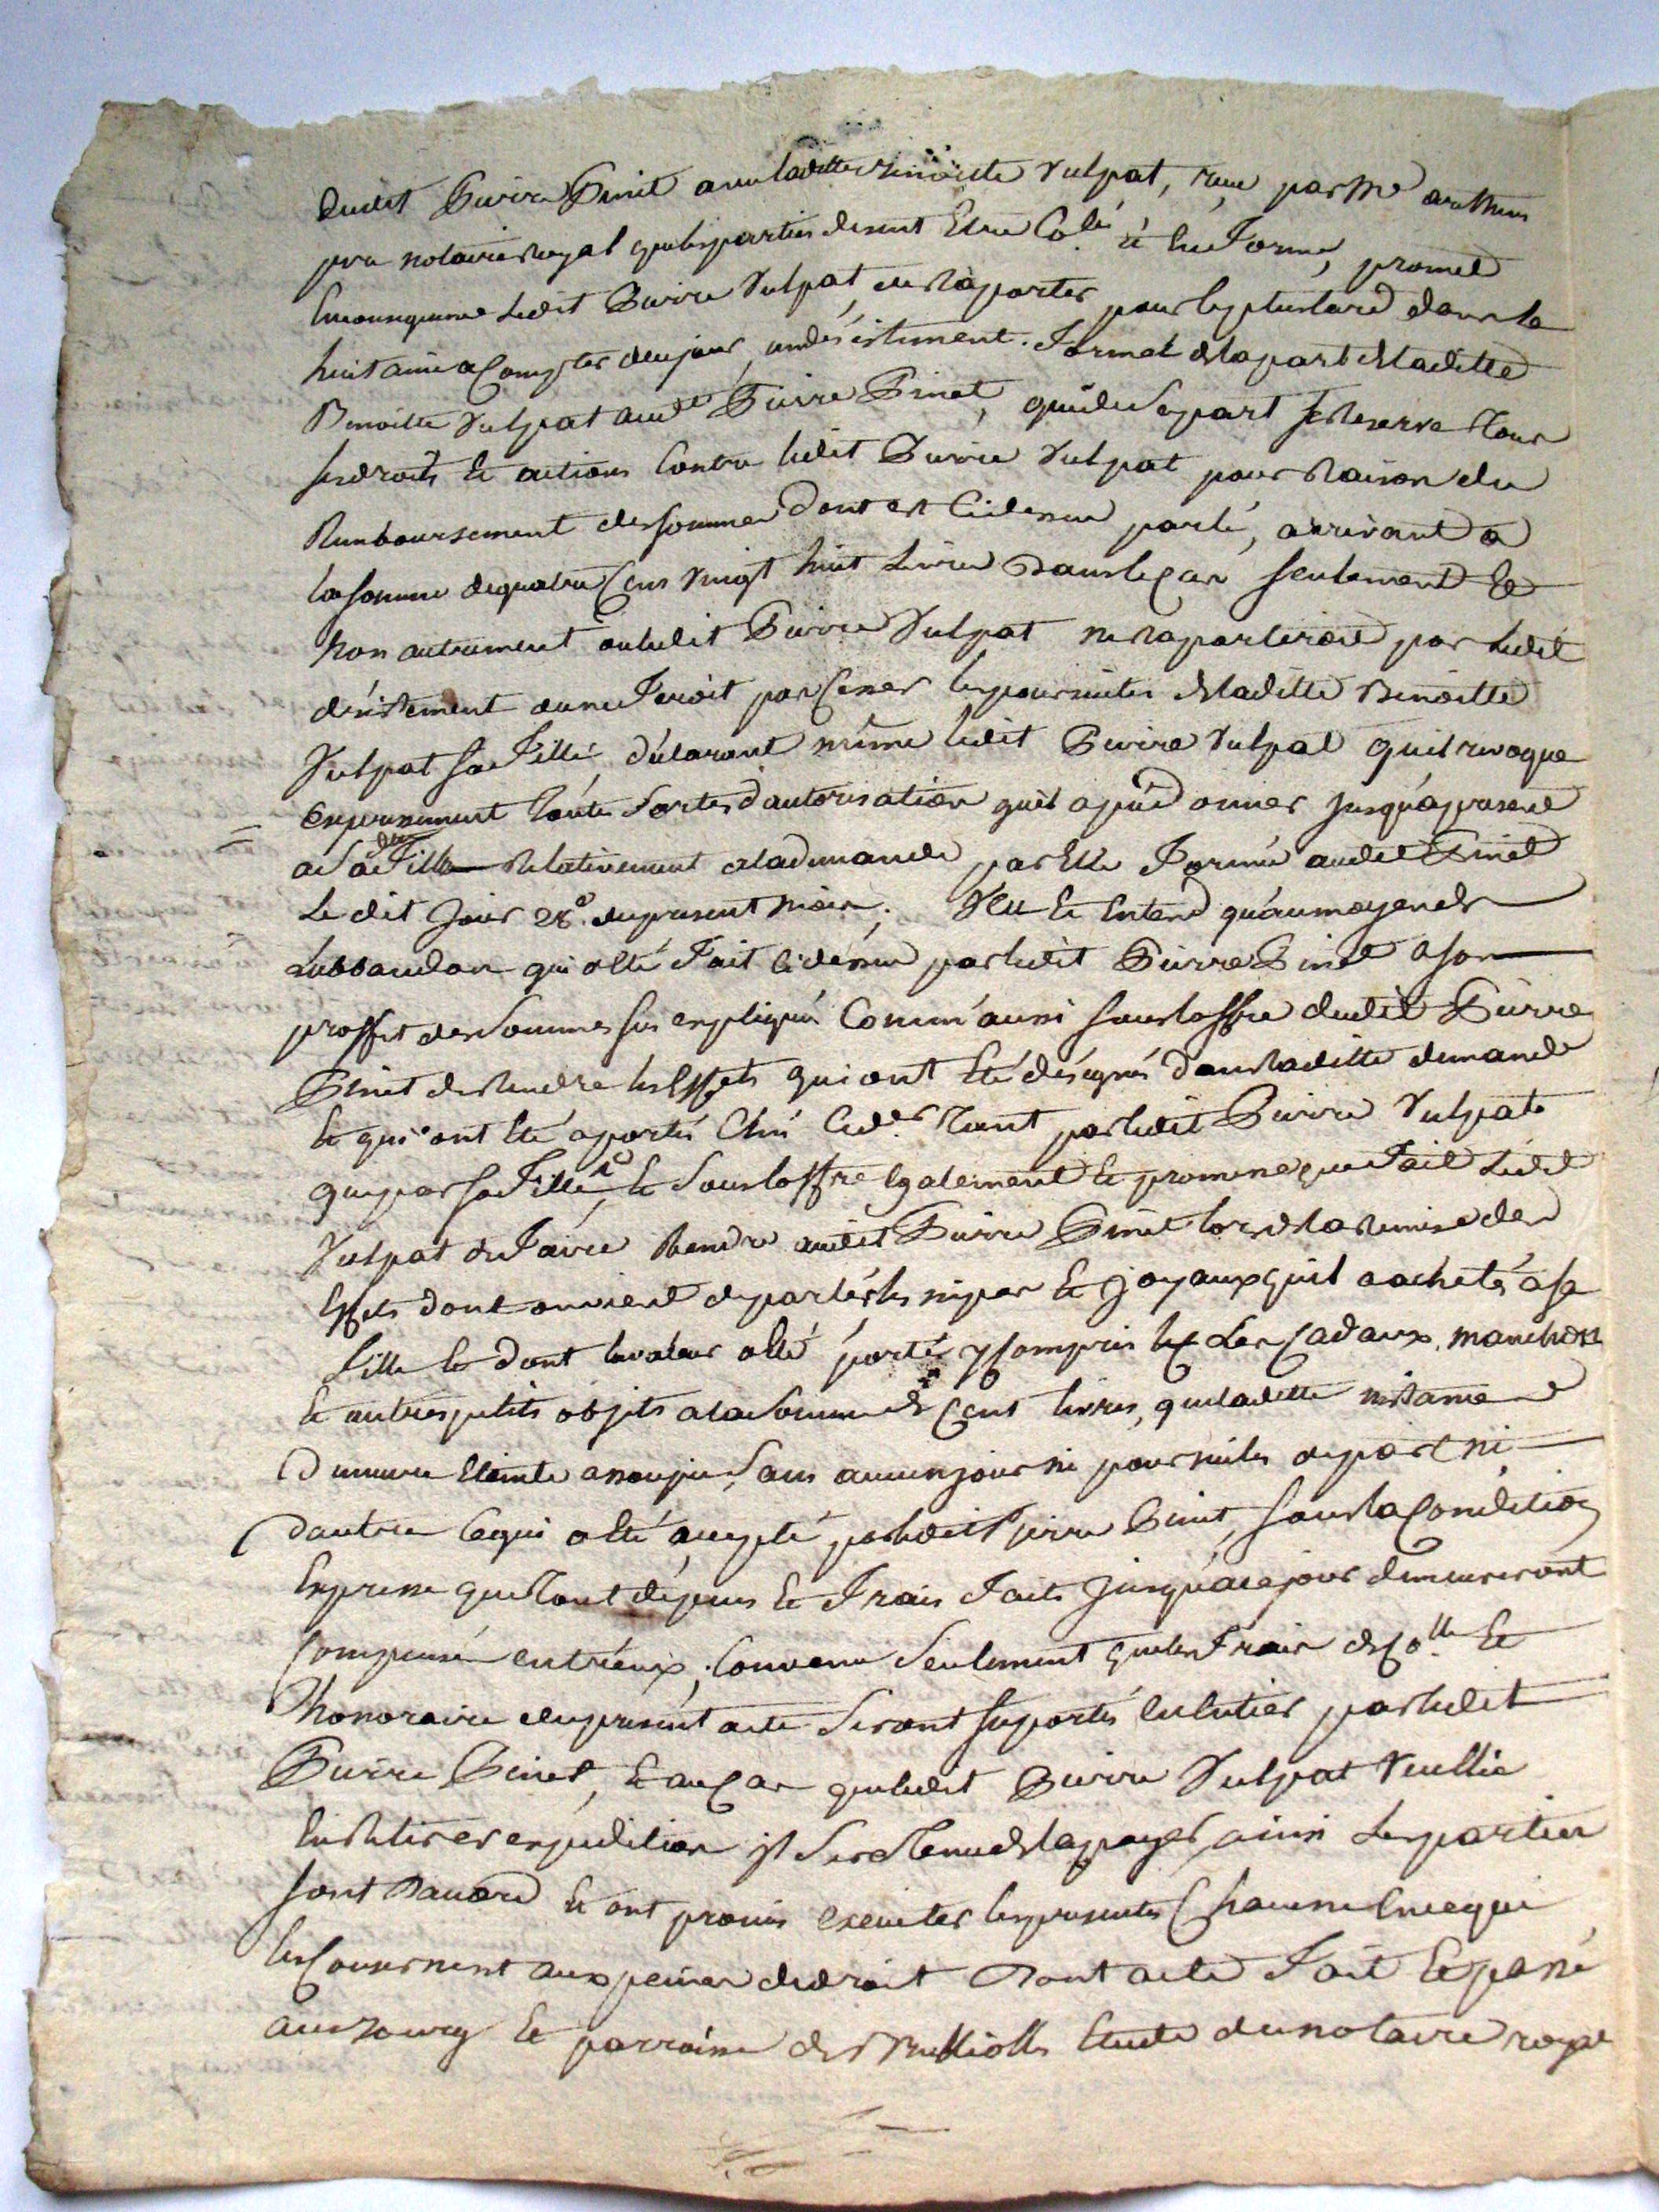 dudit Pierre Pinet avec laditte Benoitte Vulpat, reçu par Me
notaire royal que les parties disent Etre Colé et En forme, promet
En consequence Ledit Pierre Vulpat de raporter pour le plus tard dans la
huitaine a Compter de ce jour, un désistement formel de la part de laditte
Benoitte Vulpat audt Pierre Pinet, qui de sa part se reserve tous
ses droits Et actions Contre ledit Pierre Vulpat pour raison du
Remboursement des sommes dont est Cidessus parlé, arrivant a
la somme de quatre Cens vingt huit Livres dans le Cas seulement Et
non autrement ou ledit Pierre Vulpat ne raporteroit pas Ledit
désistement ou ne feroit pas Cesser les poursuites de laditte Benoitte
Vulpat sa fille, déclarant même ledit Pierre Vulpat qu'il revoque
expressement toutes sortes d'autorisation qu'il a pû donner jusqu'a present
a Sa ditte fille relativement a la demande par Elle formée audit Pinet
Le dit jour 28e du present mois, Veu Et Entend qu'au moyen de
Labbandon qui a Eté fait cidessus par ledit Pierre Pinet a son
proffit des sommes sus expliquées Comm'aussi sous l'offre dudit Pierre
Pinet de rendre les Effets qui ont Eté désignés dans laditte demande
Et qui ont Eté aportés Chés tant par ledit Pierre Vulpat
que par sa fille, Et sous l'offre Egalement Et promesse que fait Ledit
Vulpat de faire rendre audit Pierre Pinet lors de la remise des
Effets dont on vient de parler les nipes Et joyaux qu'il a acheté a sa
fille Et dont la valeur a Eté porté y Compris Les Cadaux, manchon
Et autres petits objets a la somme de Cent livres, que laditte instance
Demeure Eteinte assoupie, sans aucun jour ni poursuites de part ni
dautre Ce qui a Eté accepté par ledit Pierre Pinet, sous la Condition
Expresse que tout dépens Et frais faits jusqu'a ce jour demeureront
Compensé entr'eux, Convenu seulement que les frais de Colle Et
honoraire du présent acte seront suportés En Entier par ledit
Pierre Pinet, Et au Cas que ledit Pierre Vulpat veullie
En retirer expedition il sera tenu de la payer, ainsi Les parties
sont Daccord Et ont promis executer les presentes Chacune En ce qui
les Concernent aux peines de droit Dont acte fait Et passé
au Bourg Et parroisse de Etude du notaire royal